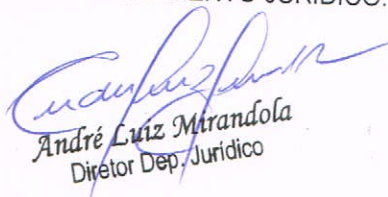 JURÍDICO.
André Luiz Mirandola
Diretor Dep. Jurídico